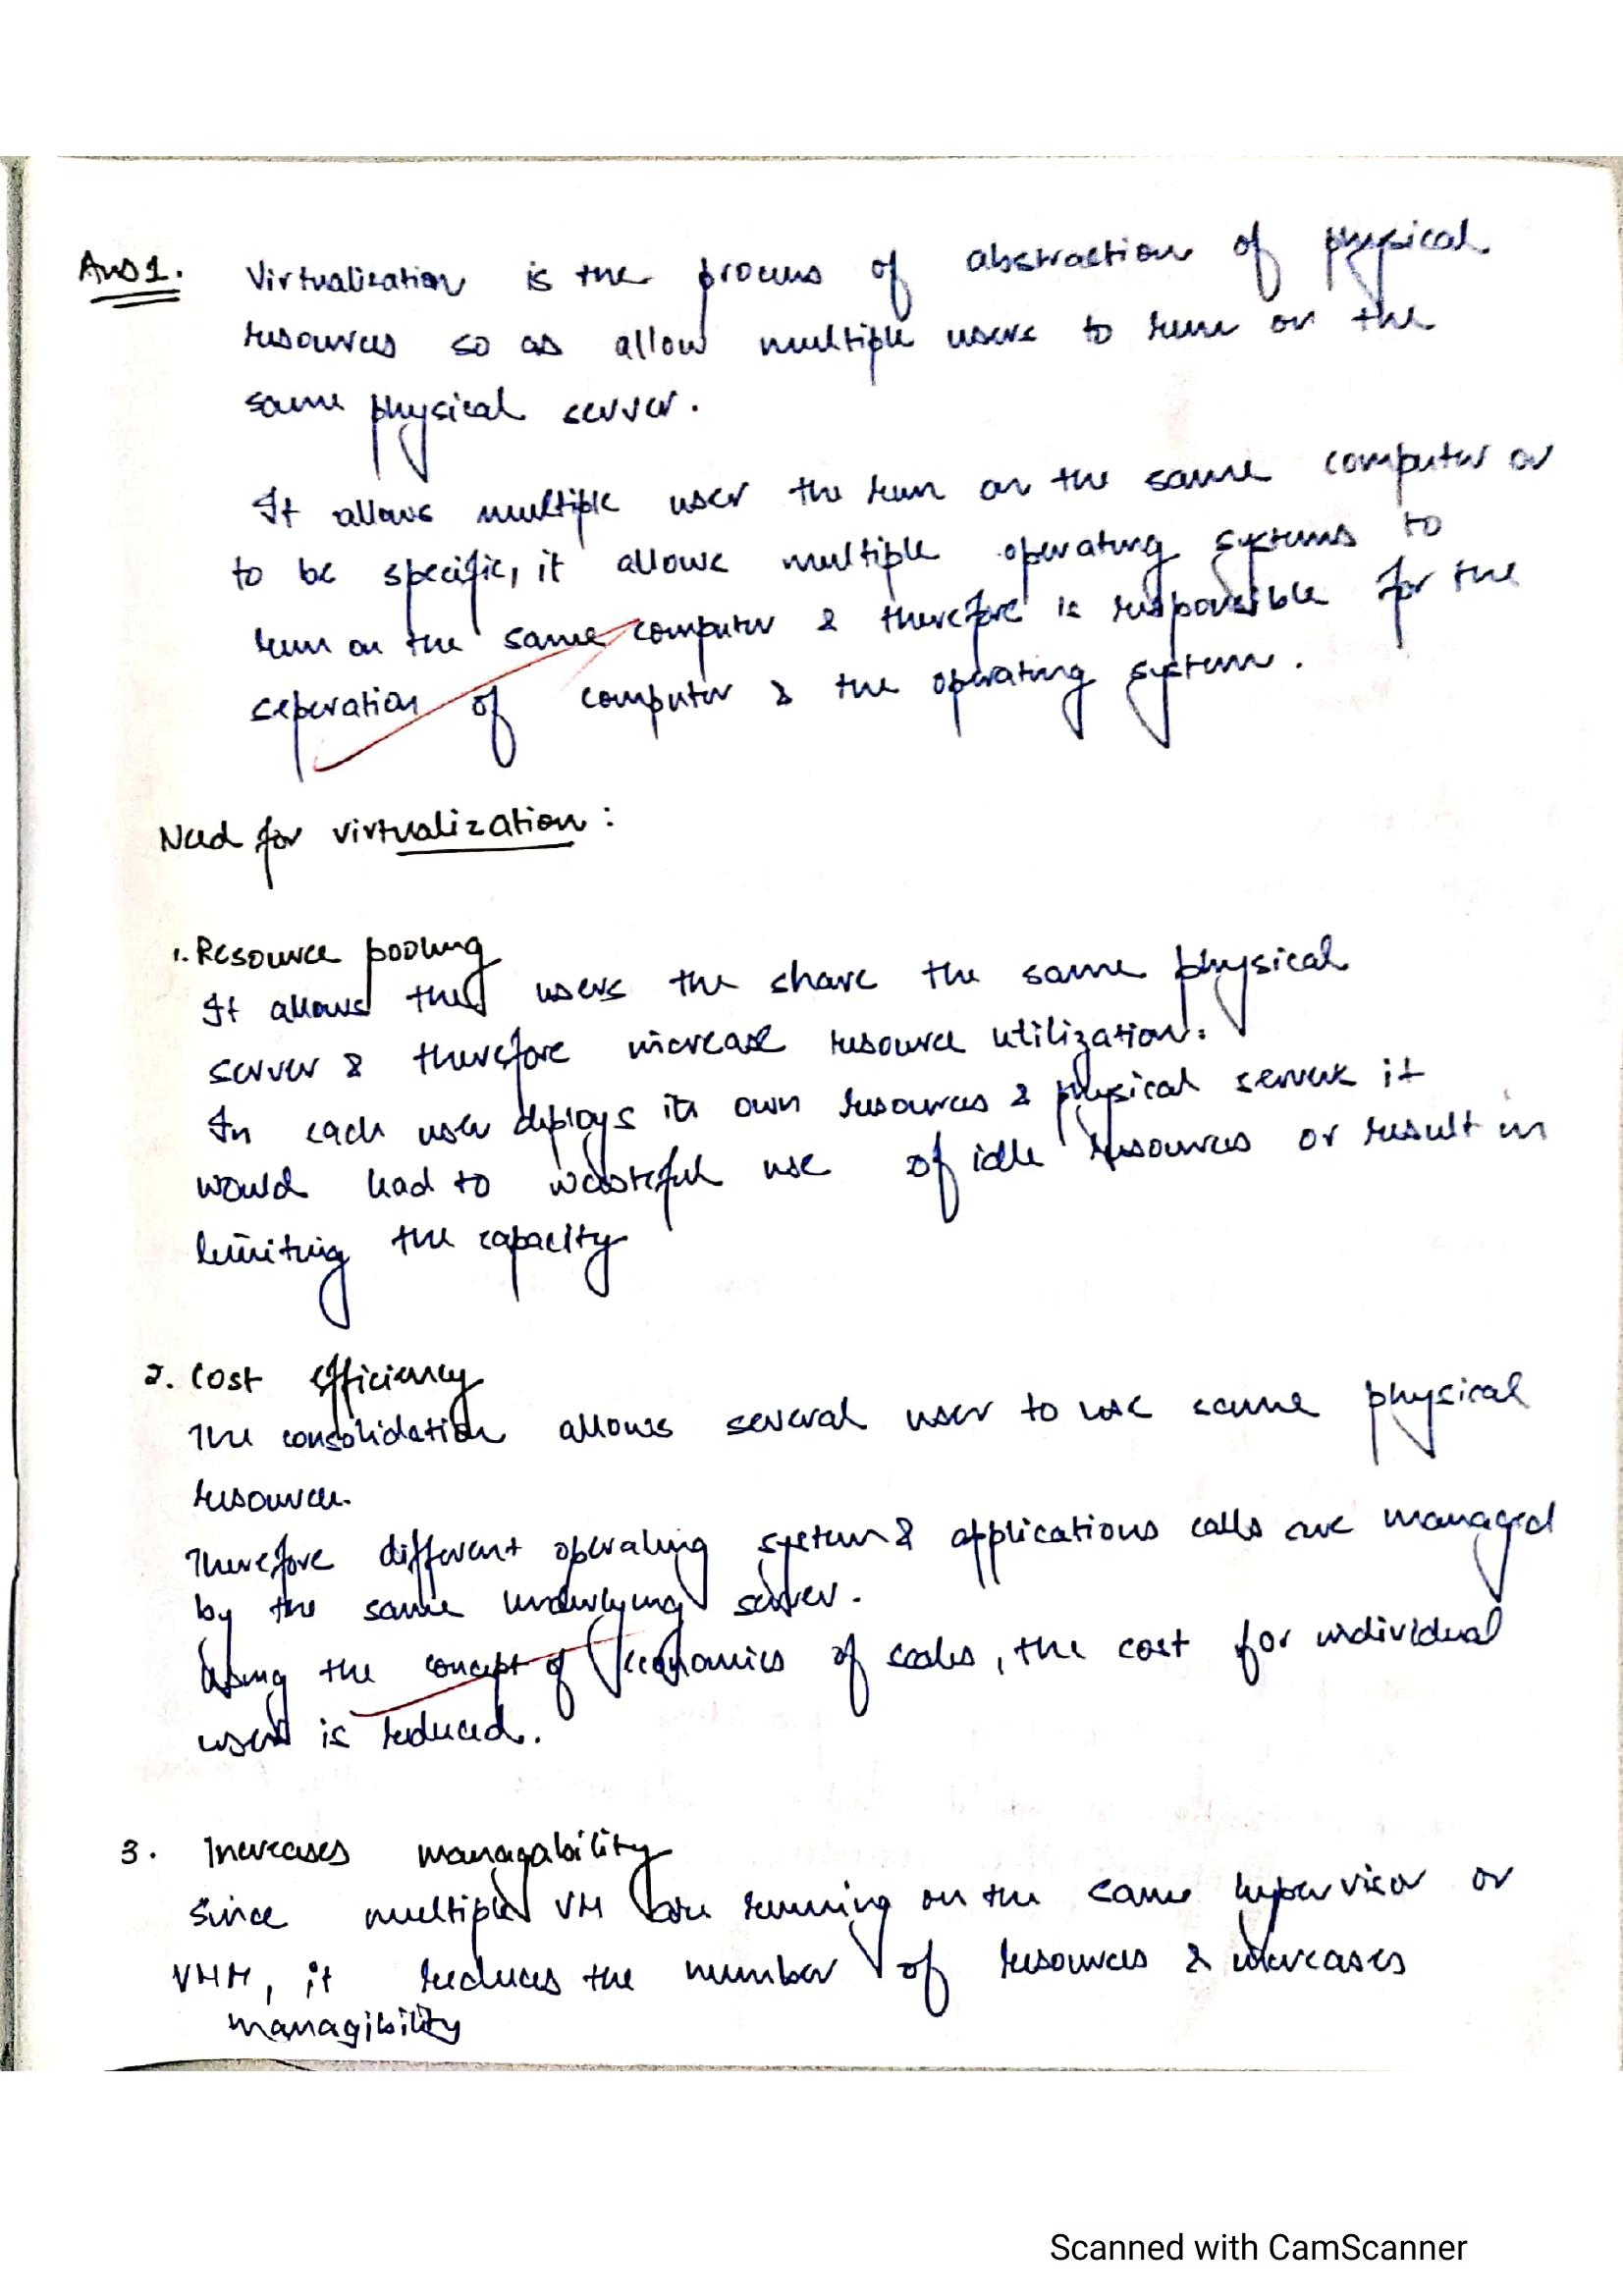 Ans 1. Virtualization is the process of abstraction of physical
resources so as allow multiple users to run on the
same physical server.
It allows multiple user the run on the same computer or
to be specific, it allows multiple operating systems to
run on the same computer & therefore is responsible for the
seperation of computer & the operating system.
Need for virtualization :
1. Resource pooling
It allows the users the share the same physical
server & therefore increase resource utilization.
In each user deploys its own resources & physical servers it
would lead to wasteful use of idle resources or result in
limiting the capacity
2. Cost efficiency
The consolidation allows several user to use same physical
resource.
Therefore different operating system & applications calls are managed
by the same underlying server.
Using the concept of economics of scales, the cost for individual
user is reduced.
3. Increases managability
Since multiple VM are running on the same hypervisor or
VMM, it reduces the number of resources & increases
managibility
Scanned with CamScanner